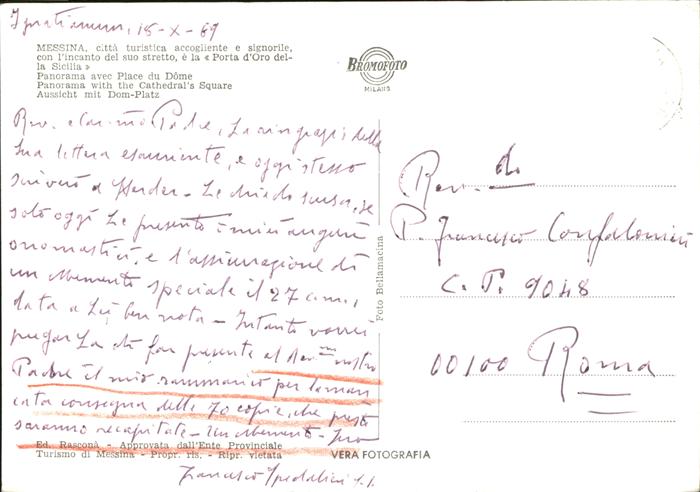 Ignatianum, 15-X-69
MESSINA, città turistica accogliente e signorile,
con l'incanto del suo stretto, è la « Porta d'Oro del-
la Sicilia »
Panorama avec Place du Dôme
Panorama with the Cathedral's Square
Aussicht mit Dom-Platz
BROMOFOTO
MILANO
Rev. e Car.mo Padre, La ringrazio della
Sua lettera esauriente, e oggi stesso
scriverò a Herder - Le chiedo scusa, se
solo oggi Le presento i miei auguri
onomastici, e l'assicurazione di
un Memento speciale il 27 c.m.,
data a Lei ben nota - Intanto vorrei
pregarLa di far presente al Rev.mo nostro
Padre il mio rammarico per la man
cata consegna delle 70 copie, che presto
saranno recapitate - Un Memento - pro
Francesco Spedalieri S.I.
Ed. Rasconà - Approvata dall'Ente Provinciale
Turismo di Messina - Propr. ris. - Ripr. vietata
Foto Bellamacina
VERA FOTOGRAFIA
Rev.do
P. Francesco Confalonieri
C. P. 9048
00100 Roma